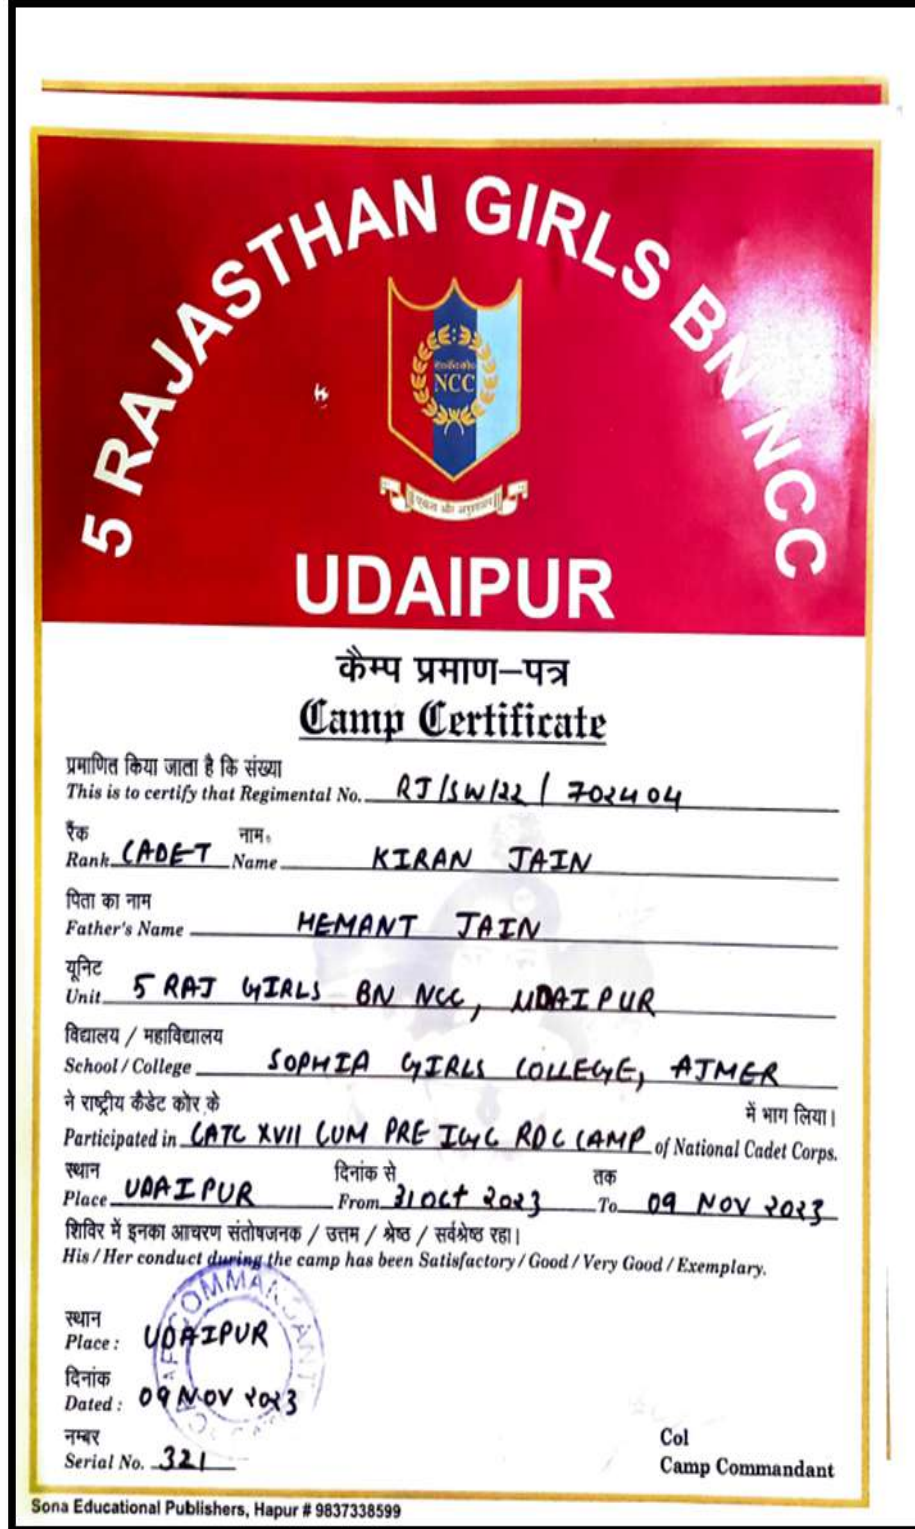 5 RAJASTHAN GIRLS BN NCC
NCC
एकता और अनुशासन
UDAIPUR
कैम्प प्रमाण–पत्र
Camp Certificate
प्रमाणित किया जाता है कि संख्या
This is to certify that Regimental No. RJ/SW/22/702404
रैंक नाम
Rank CADET Name KIRAN JAIN
पिता का नाम
Father's Name HEMANT JAIN
यूनिट
Unit 5 RAJ GIRLS BN NCC, UDAIPUR
विद्यालय / महाविद्यालय
School / College SOPHIA GIRLS COLLEGE, AJMER
ने राष्ट्रीय कैडेट कोर के में भाग लिया।
Participated in CATC XVII CUM PRE IGC RDC CAMP of National Cadet Corps.
स्थान दिनांक से तक
Place UDAIPUR From 31 Oct 2023 To 09 NOV 2023
शिविर में इनका आचरण संतोषजनक / उत्तम / श्रेष्ठ / सर्वश्रेष्ठ रहा।
His / Her conduct during the camp has been Satisfactory / Good / Very Good / Exemplary.
COMMANDANT
स्थान
Place : UDAIPUR
दिनांक
Dated : 09 NOV 2023
नम्बर
Serial No. 321
Col
Camp Commandant
Sona Educational Publishers, Hapur # 9837338599